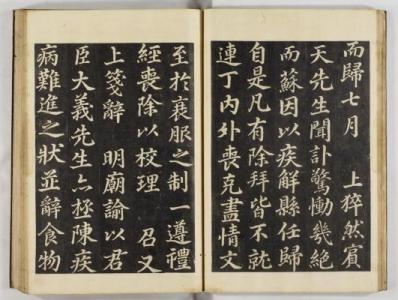 而歸七月　上猝然賓
天先生聞訃驚慟幾絶
而蘇因以疾解縣任歸
自是凡有除拜皆不就
連丁內外喪克盡情文
至於衰服之制一遵禮
經喪除以校理　召又
上箋辭　明廟諭以君
臣大義先生六極陳疾
病難進之狀並辭食物